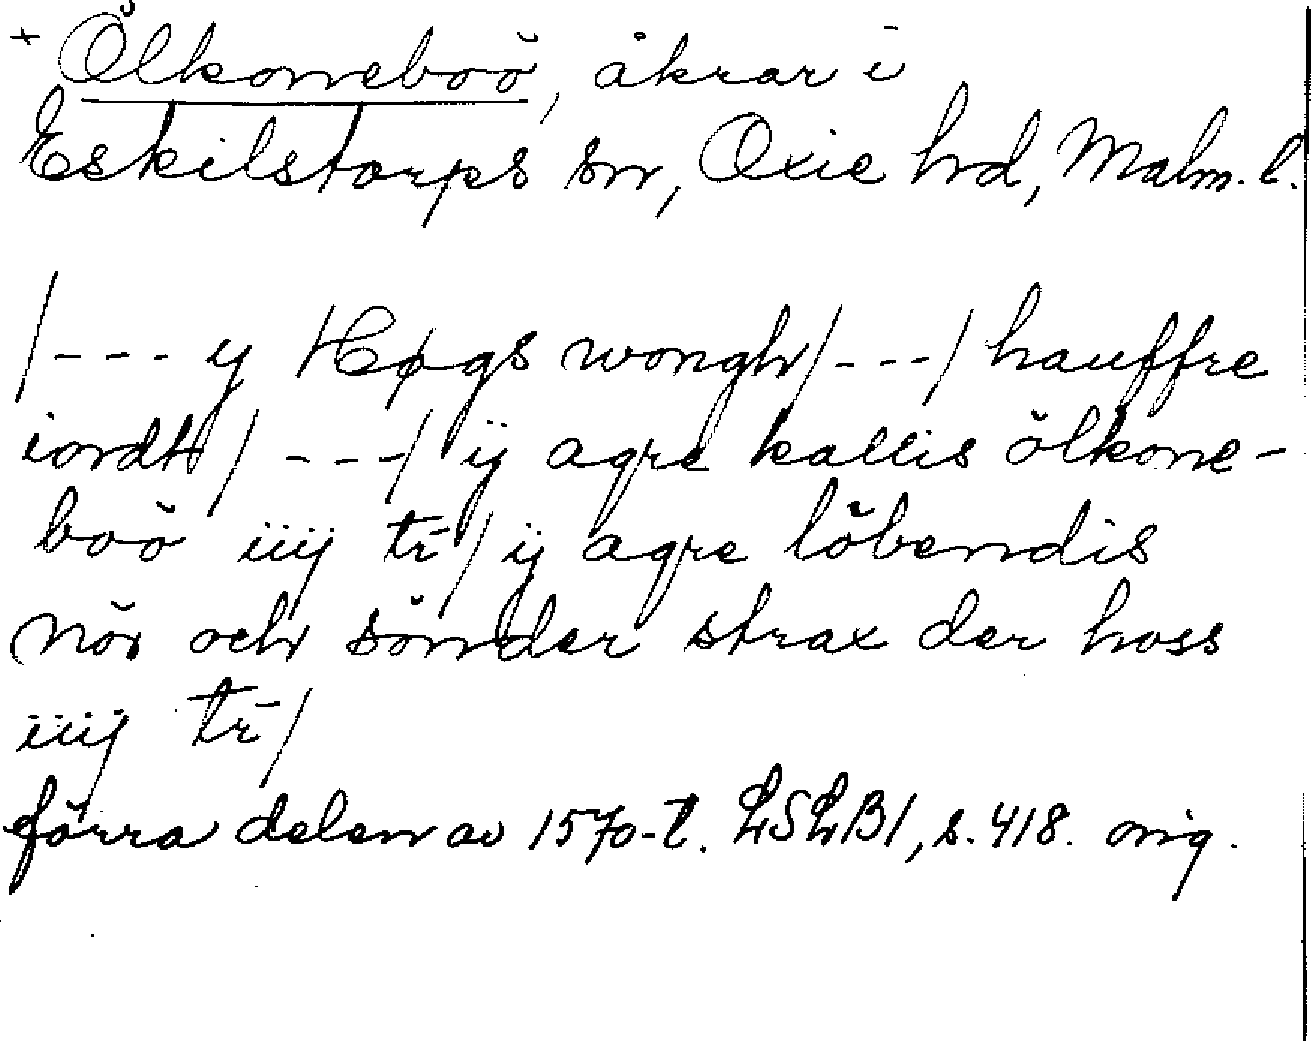 + Ölkoneboö, åkrar i
Eskilstorps sn, Oxie hd, Malm. l.
/--- y Høgs wongh/---/ hauffre
iordt/---/ ÿ agre kallis ölkone-
boö iiij tr/ ÿ agre löbendis
nör och sönder strax der hoss
iiij tr/
förra delen av 1570-t. LSLB1, s. 418. orig.